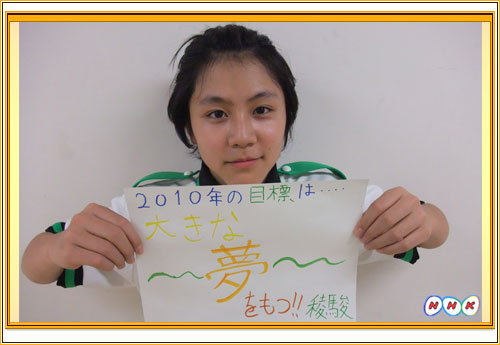 2010年の目標は‥‥
大きな
～夢～
をもつ!! 稜駿
NHK